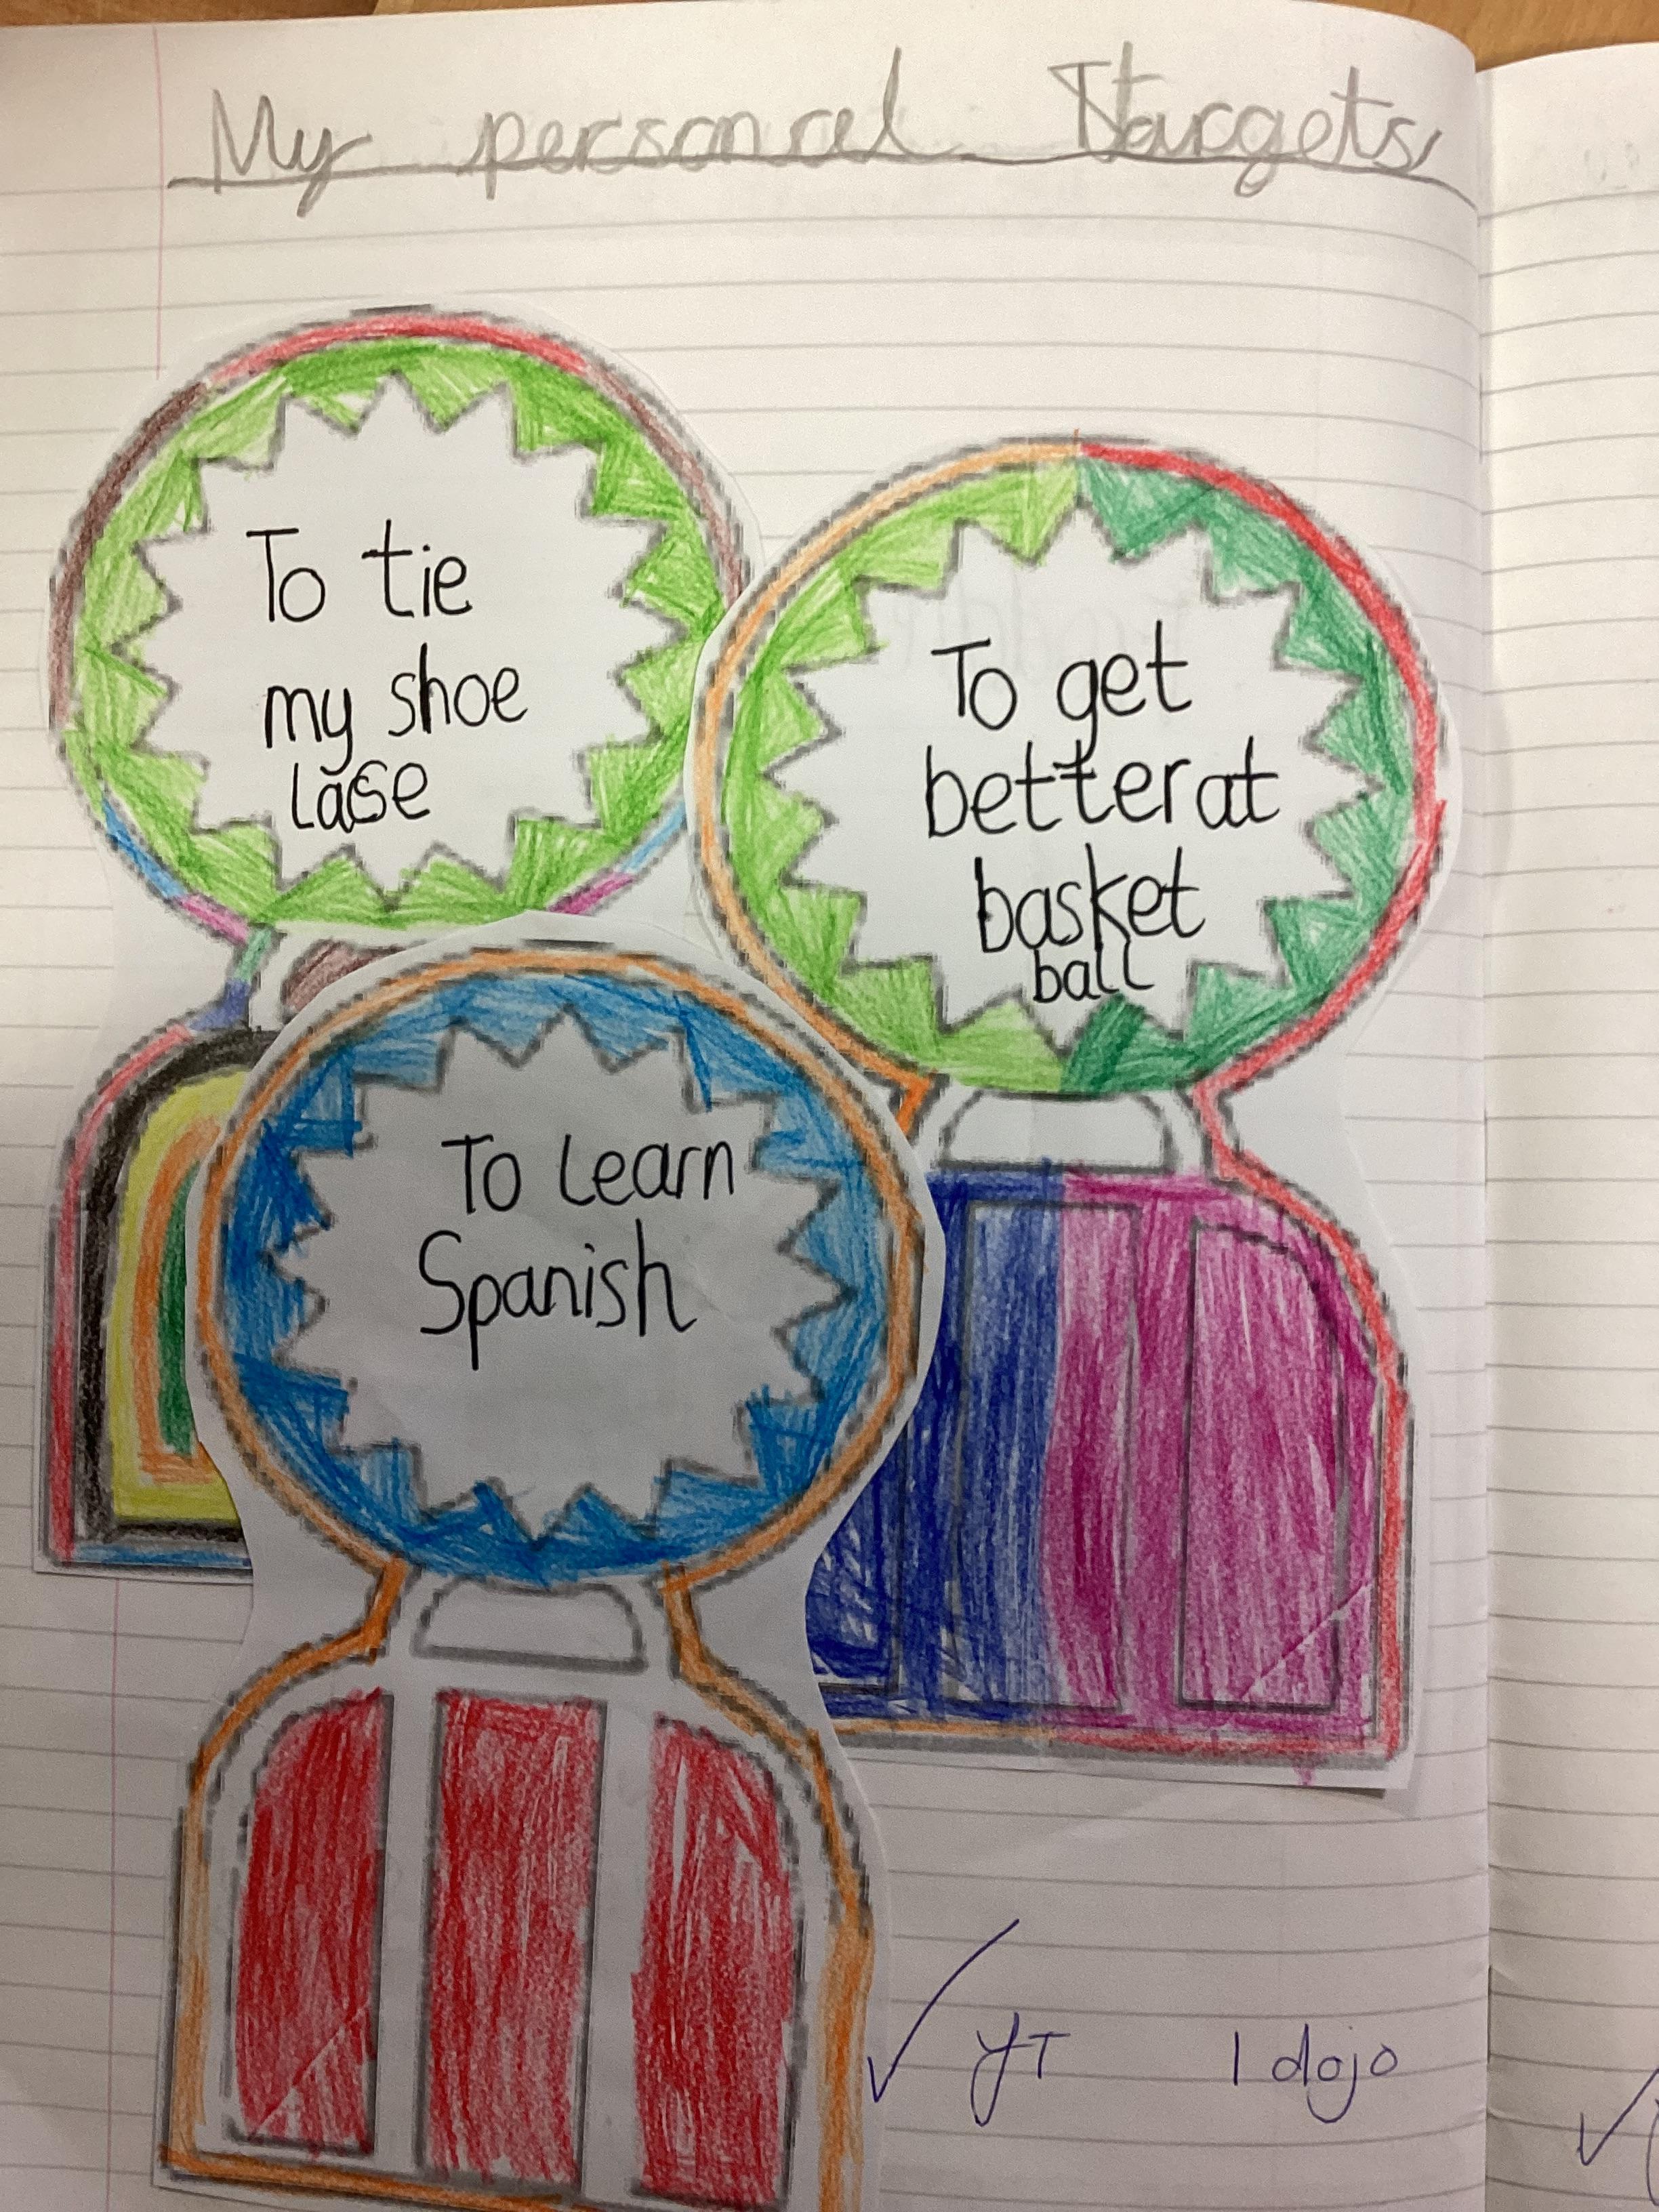 My personal Targets
To tie
my shoe
lace
To get
better at
basket
ball
To learn
Spanish
✓ YT 1 dojo